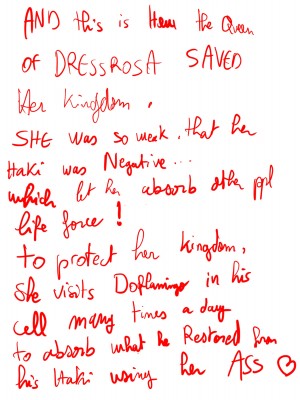 AND this is How the Queen
of DRESSROSA SAVED
Her Kingdom.
SHE was so weak, that her
Haki was Negative...
which let her absorb other ppl
life force!
to protect her kingdom,
She visits Doflamingo in his
cell many times a day
to absorb what he Restored from
his Haki using her ASS ♡